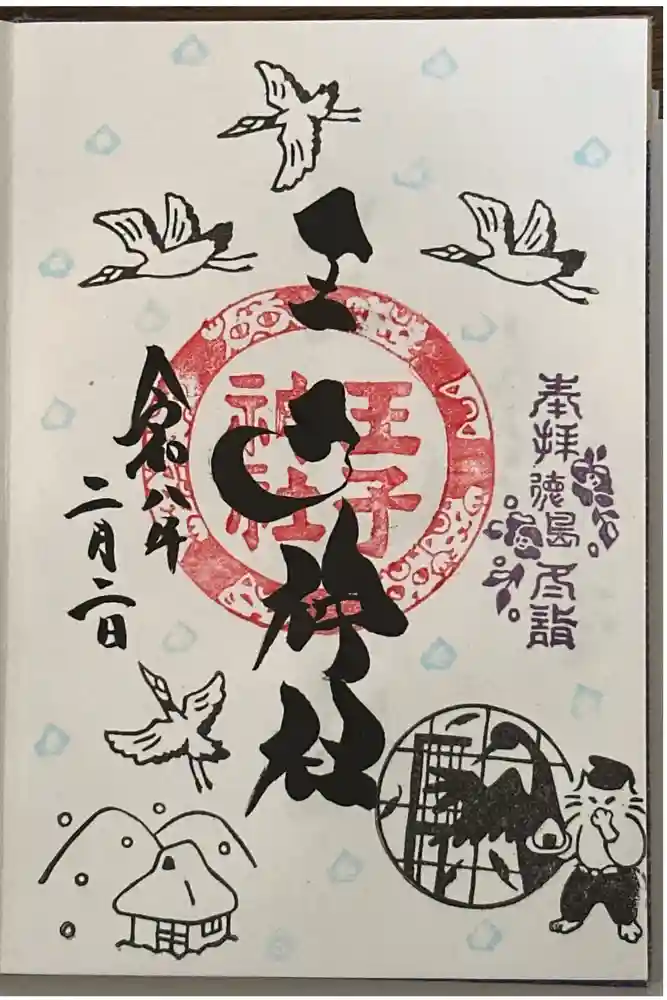 奉拝徳島冬詣
王子神社
王子
神社
令和八年
二月二日